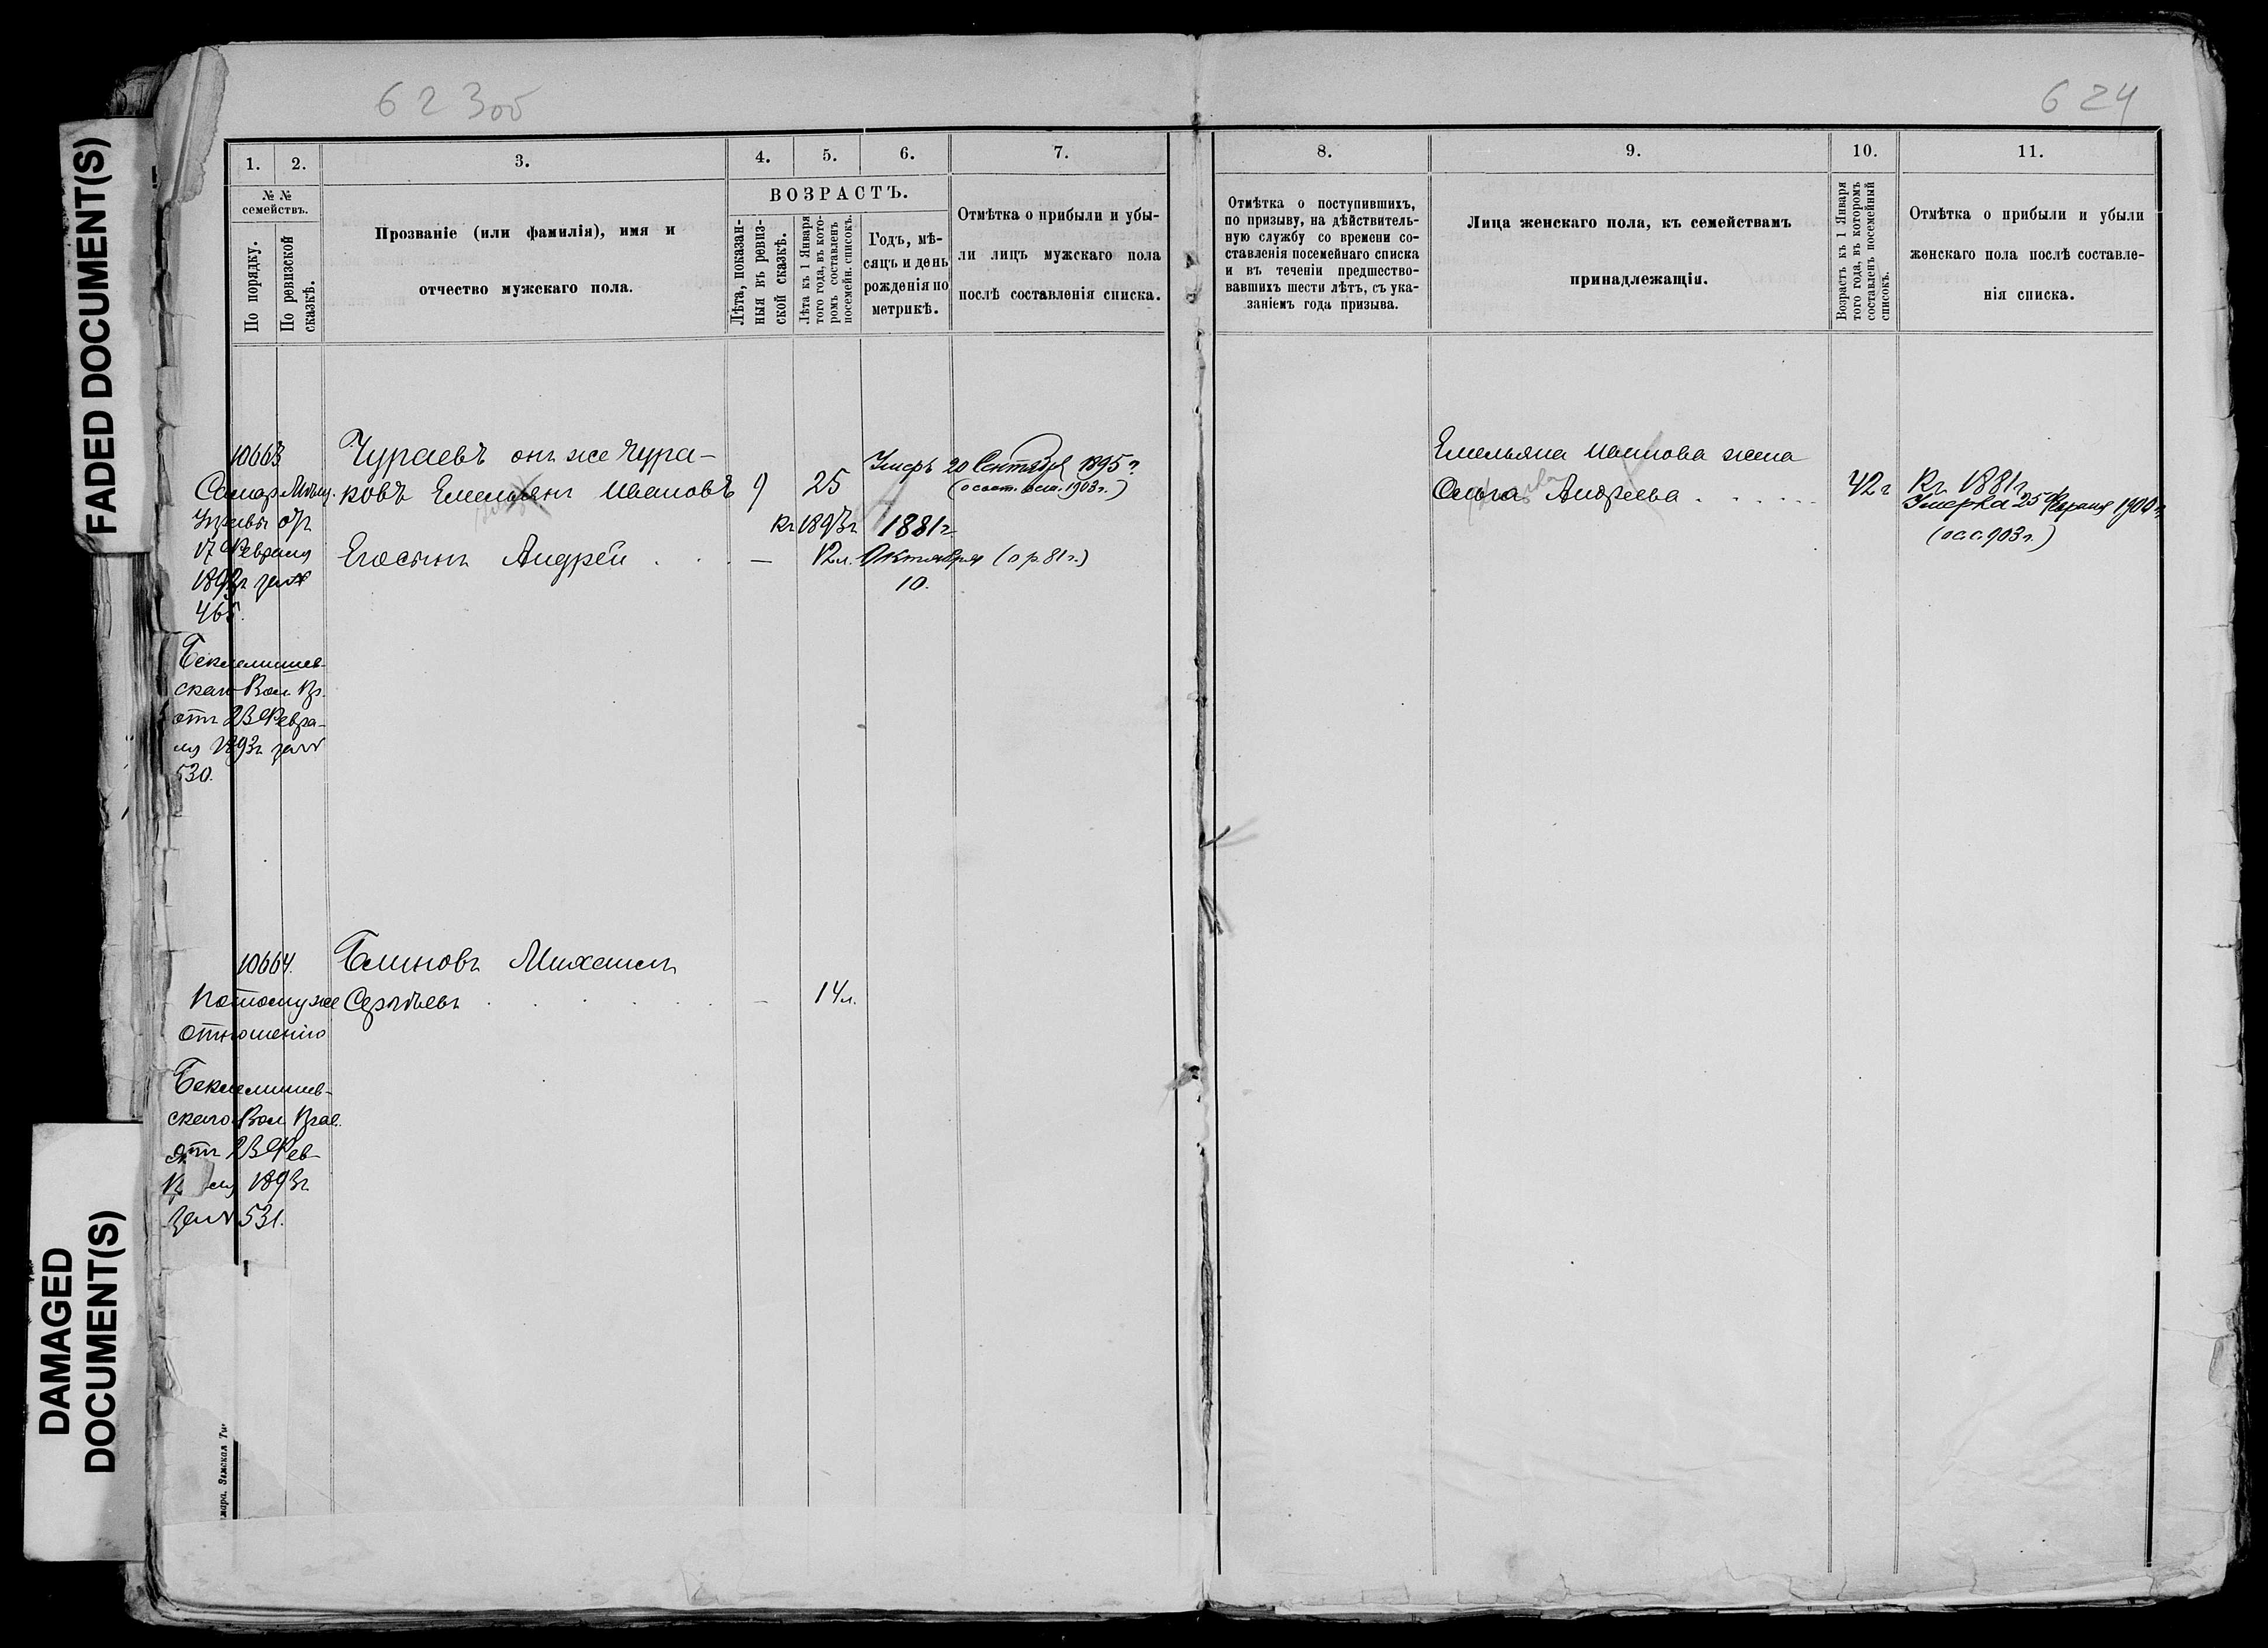 FADED DOCUMENT(S)
DAMAGED
DOCUMENT(S)
623об
624
1.
2.
3.
4.
5.
6.
7.
8.
9.
10.
11.
№ №
семействъ.
По порядку.
По ревизской
сказкѣ.
Прозваніе (или фамилія), имя и
отчество мужскаго пола.
ВОЗРАСТЪ.
Лѣта, показан-
ныя въ ревиз-
ской сказкѣ.
Лѣта къ 1 Января
того года, въ кото-
ромъ составленъ
посемейн. списокъ.
Годъ, мѣ-
сяцъ и день
рожденія по
метрикѣ.
Отмѣтка о прибыли и убы-
ли лицъ мужскаго пола
послѣ составленія списка.
Отмѣтка о поступившихъ,
по призыву, на дѣйствитель-
ную службу со времени со-
ставленія посемейнаго списка
и въ теченіи предшество-
вавшихъ шести лѣтъ, съ ука-
заніемъ года призыва.
Лица женскаго пола, къ семействамъ
принадлежащія.
Возрастъ къ 1 Января
того года, въ которомъ
составленъ посемейный
списокъ.
Отмѣтка о прибыли и убыли
женскаго пола послѣ составле-
нія списка.
10663.
Самар. Мѣщ.
Управы отъ
17 Февраля
1893г за №
465.
Беклемишев-
скаго Вол. Пр.
отъ 23 Февра-
ля 1893г за №
530.
Чураевъ онъ же Чура-
ковъ Емельянъ Ивановъ
9
25
Умеръ 20 Сентября 1895г
(о сост. вып. 1903г.)
Къ 1893г
1881г
Его сынъ Андрей . . .
—
12л.
Октября (о р. 81г.)
10.
Емельяна Иванова жена
Ольга Андреева . . . . .
42г
Къ 1881г
Умерла 25 Февраля 1900г
(о с. с. 903г.)
10664.
По тому же
отношенію
Беклемишев-
скаго Вол Прав.
отъ 23 Фев-
ля 1893г
за № 531.
Блиновъ Михаилъ
Сергѣевъ . . . . .
—
14л.
мара. Земская Ти